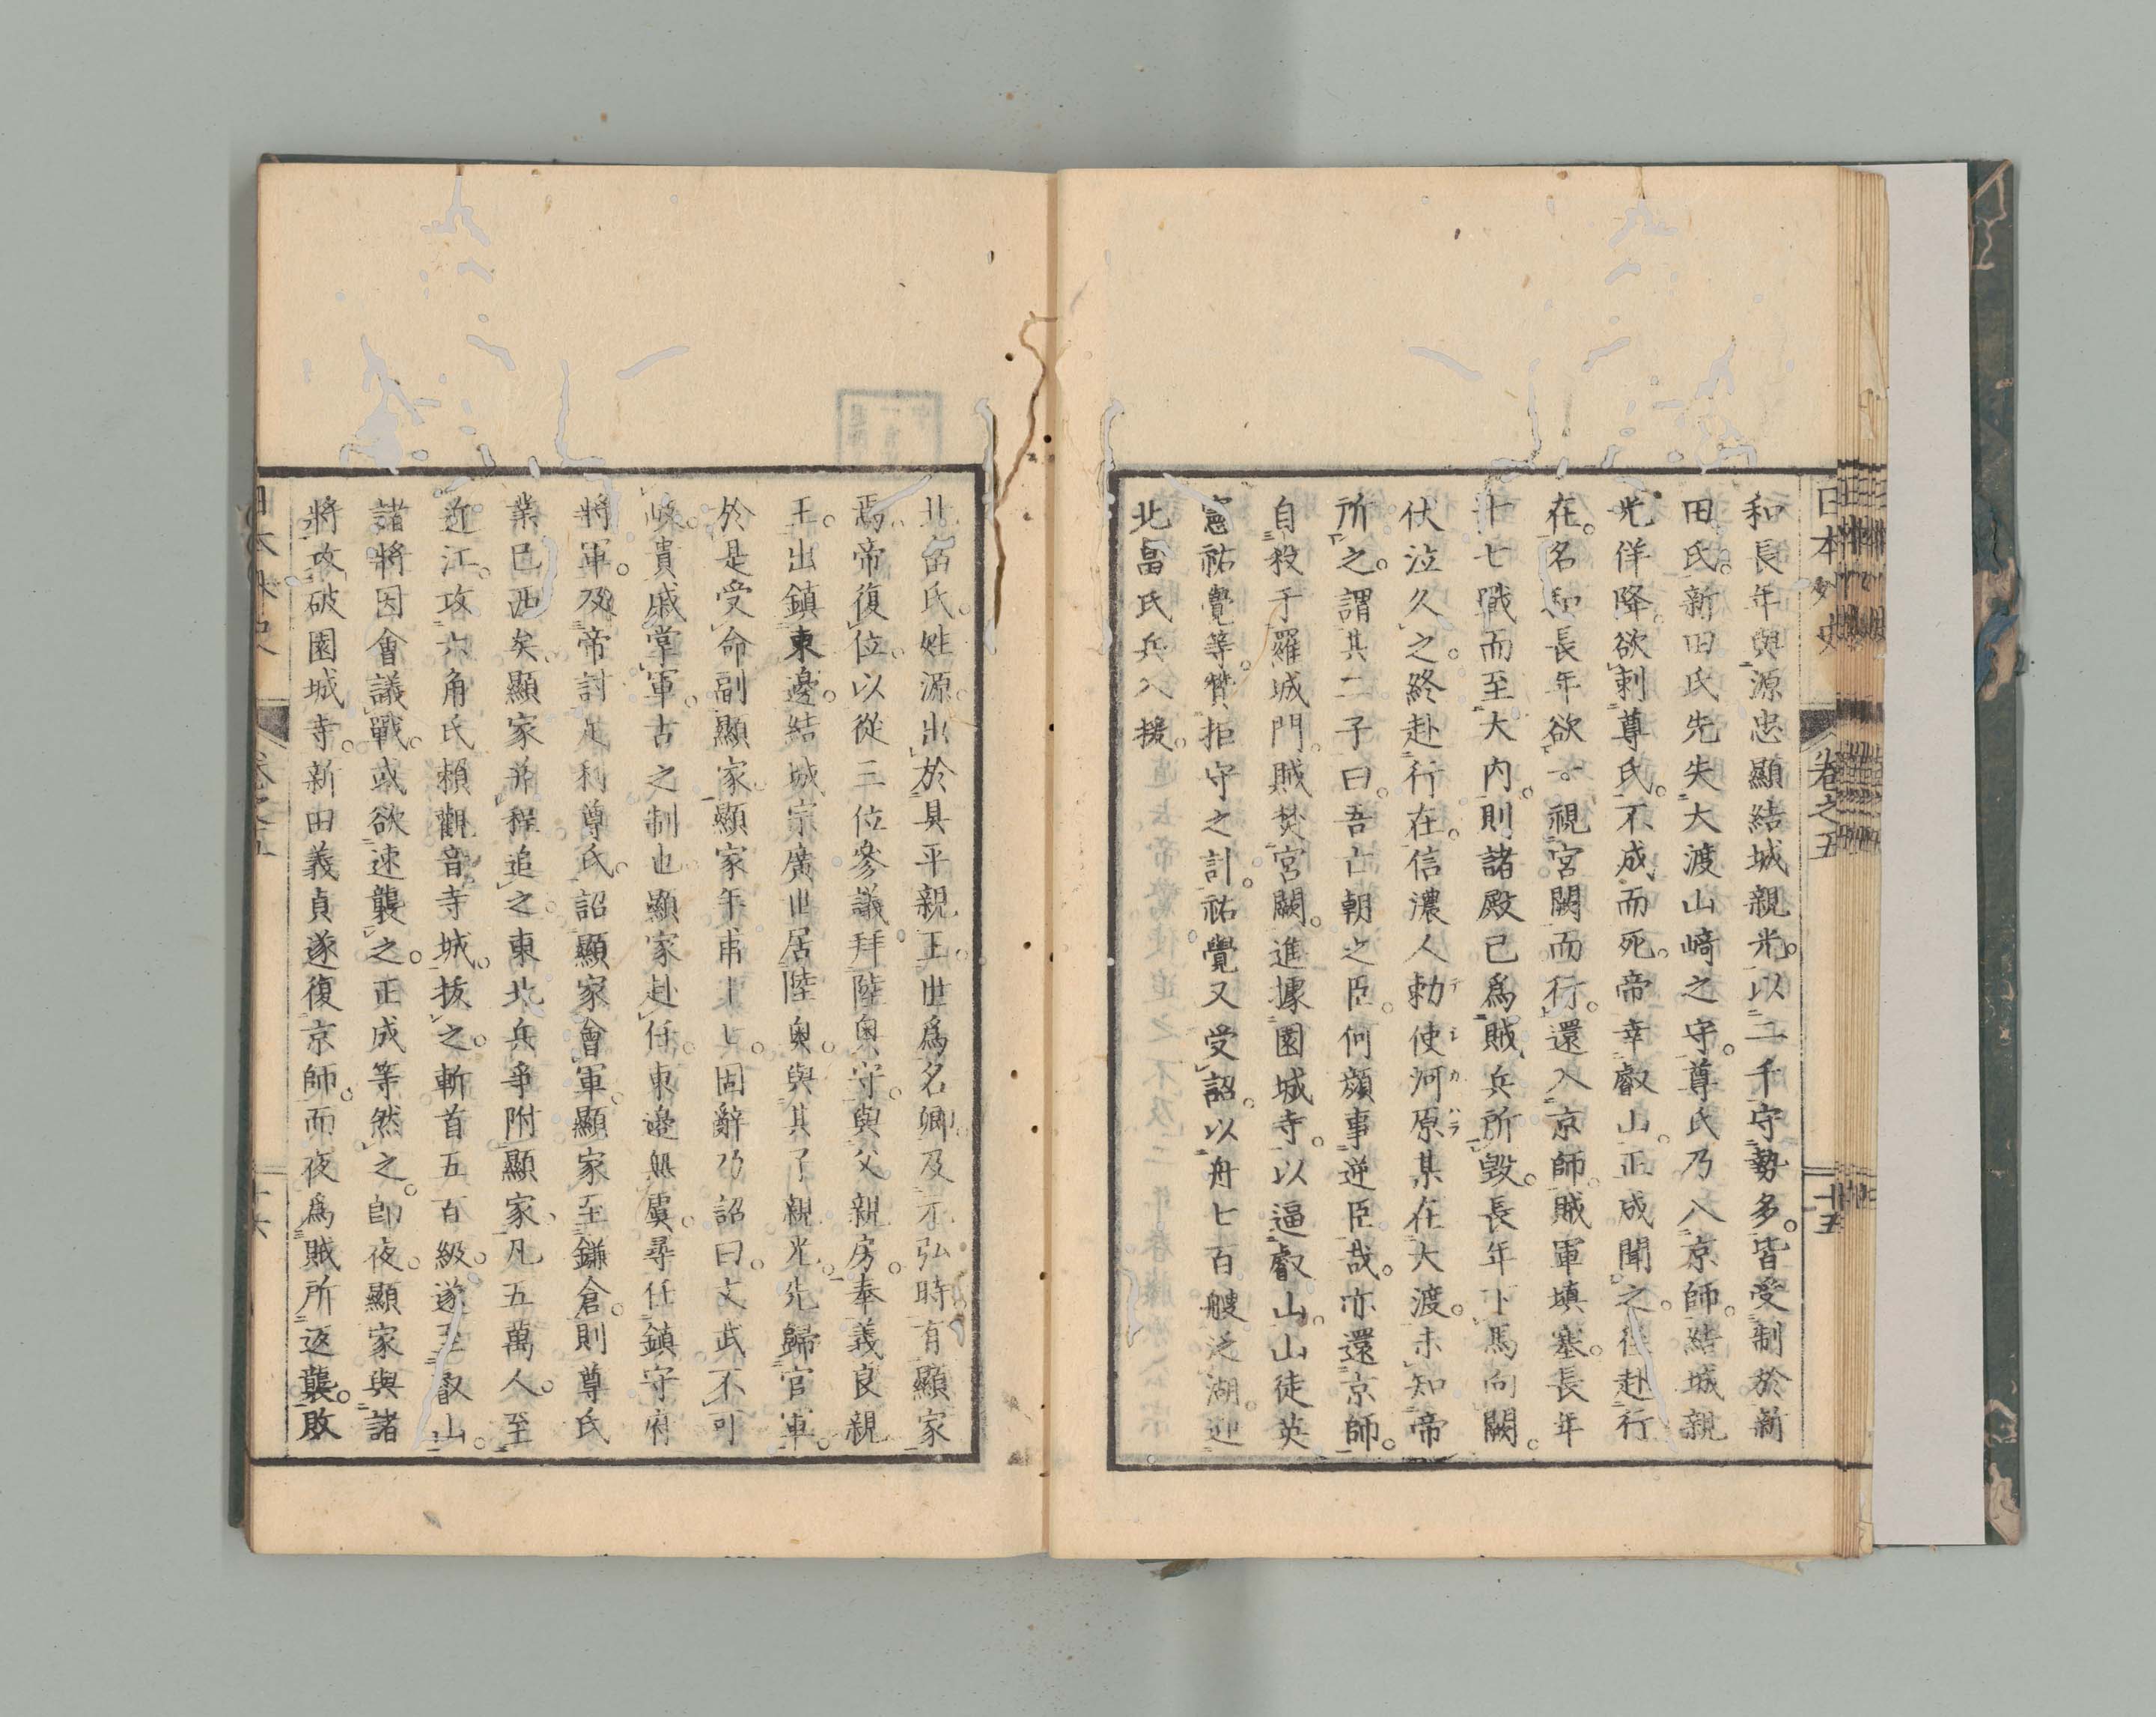 日本外史 卷之五 二十五
和長年與源忠顯結城親光。以二千守勢多。皆受制於新
田氏。新田氏先失大渡山崎之守。尊氏乃入京師。結城親
光佯降。欲刺尊氏。不成而死。帝幸叡山。正成聞之。往赴行
在。名和長年欲一視宮闕而行。還入京師。賊軍填塞。長年
十七戰而至大内。則諸殿已爲賊兵所毀。長年下馬向闕。
伏泣久之。終赴行在。信濃人勅使河原某在大渡。未知帝
所之。謂其二子曰。吾亡朝之臣。何顔事逆臣哉。亦還京師。
自殺于羅城門。賊焚宮闕。進據園城寺。以逼叡山。山徒英
憲祐覺等。賛拒守之計。祐覺又受詔。以舟七百艘泛湖。迎
北畠氏兵入援。
北畠氏。姓源。出於具平親王。世爲名卿。及元弘時。有顯家
焉。帝復位。以從三位參議。拜陸奥守。與父親房。奉義良親
王。出鎮東邊。結城宗廣世居陸奥。與其子親光。先歸官軍。
於是受命副顯家。顯家年甫十七。固辭。乃詔曰。文武不可
岐。貴戚掌軍。古之制也。顯家赴任。東邊無虞。尋任鎮守府
將軍。及帝討足利尊氏。詔顯家會軍。顯家至鎌倉。則尊氏
業已西矣。顯家并程追之。東北兵爭附顯家。凡五萬人。至
近江。攻六角氏賴觀音寺城。抜之。斬首五百級。遂至叡山。
諸將因會議戰。或欲速襲之。正成等然之。即夜。顯家與諸
將攻破園城寺。新田義貞遂復京師。而夜爲賊所返襲。敗
日本外史 卷之五